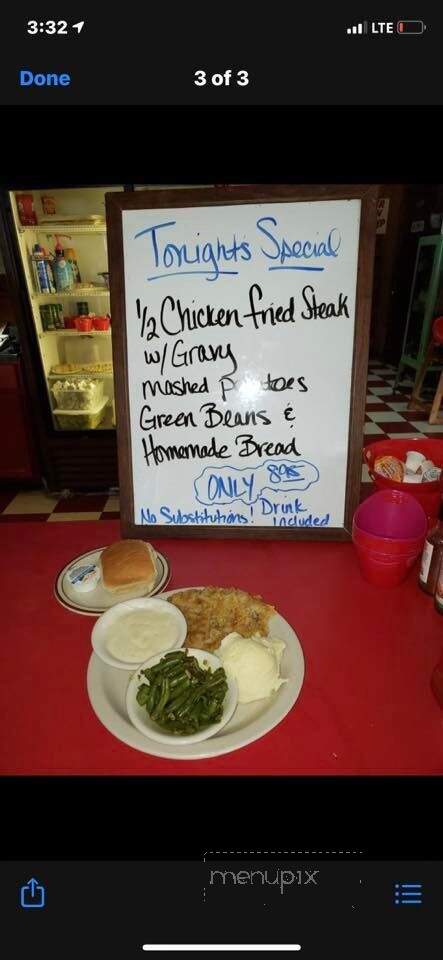 3:32
LTE
Done
3 of 3
Tonights Special
1/2 Chicken fried Steak
w/Gravy
mashed potatoes
Green Beans &
Homemade Bread
ONLY 8.95
No Substitutions! Drink
included
menupix